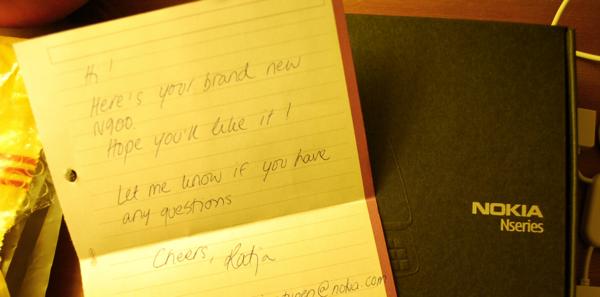 Hi!
Here's your brand new
N900.
Hope you'll like it!
Let me know if you have
any questions
Cheers, Katja
@nokia.com
NOKIA
Nseries